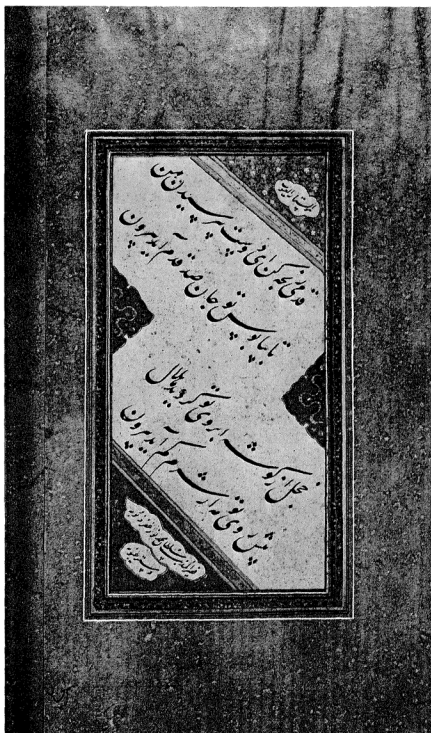 قدمی رنجه کن ای دوست بپرسیدن من
تا بپابوس تو جان صد قدم آید بیرون
خجل از گوشه ابروی تو گردید هلال
پیش روی تو مه از شرم کم آید بیرون